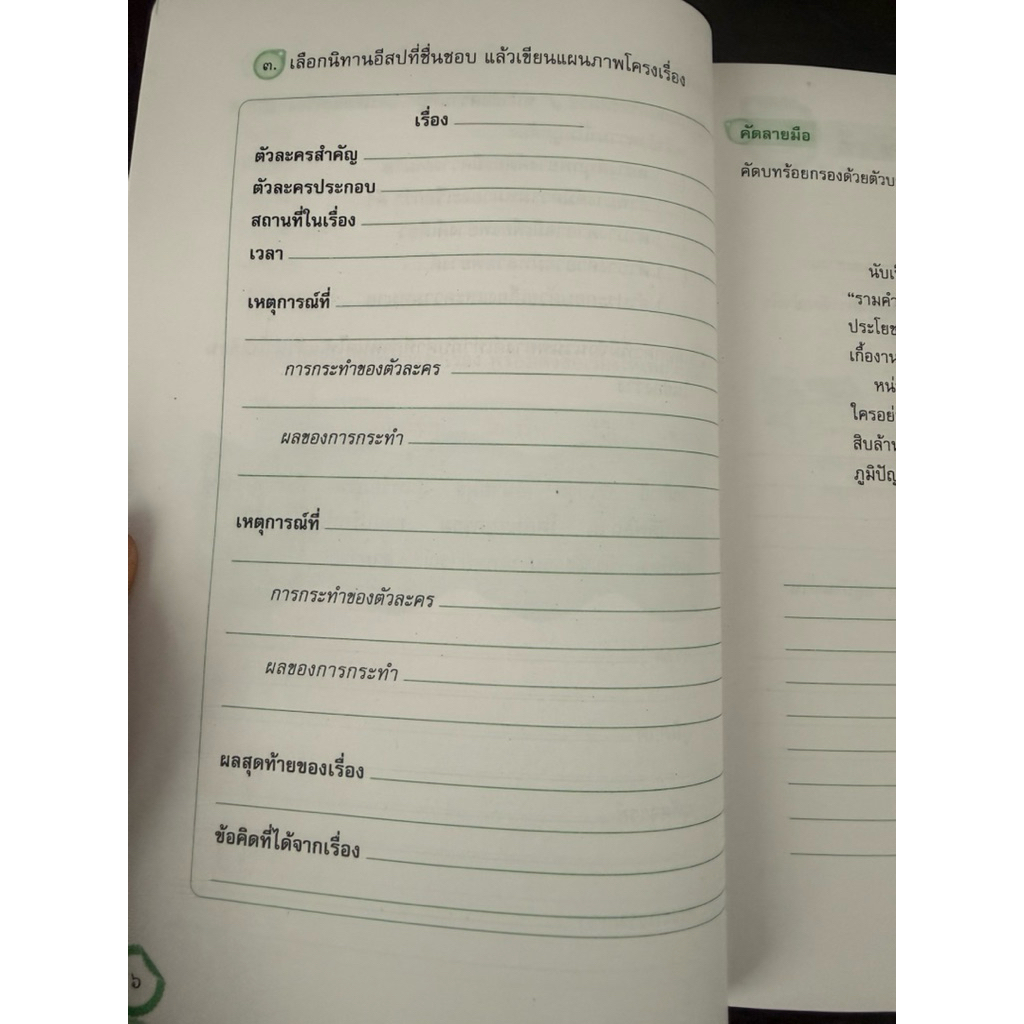 ๓. เลือกนิทานอีสปที่ชื่นชอบ แล้วเขียนแผนภาพโครงเรื่อง
เรื่อง
ตัวละครสำคัญ
ตัวละครประกอบ
สถานที่ในเรื่อง
เวลา
เหตุการณ์ที่
การกระทำของตัวละคร
ผลของการกระทำ
เหตุการณ์ที่
การกระทำของตัวละคร
ผลของการกระทำ
ผลสุดท้ายของเรื่อง
ข้อคิดที่ได้จากเรื่อง
๖
คัดลายมือ
คัดบทร้อยกรองด้วยตัวบ
นับเ
“รามคำ
ประโยช
เกื้องาน
หน่
ใครอย่
สิบล้าน
ภูมิปัญ